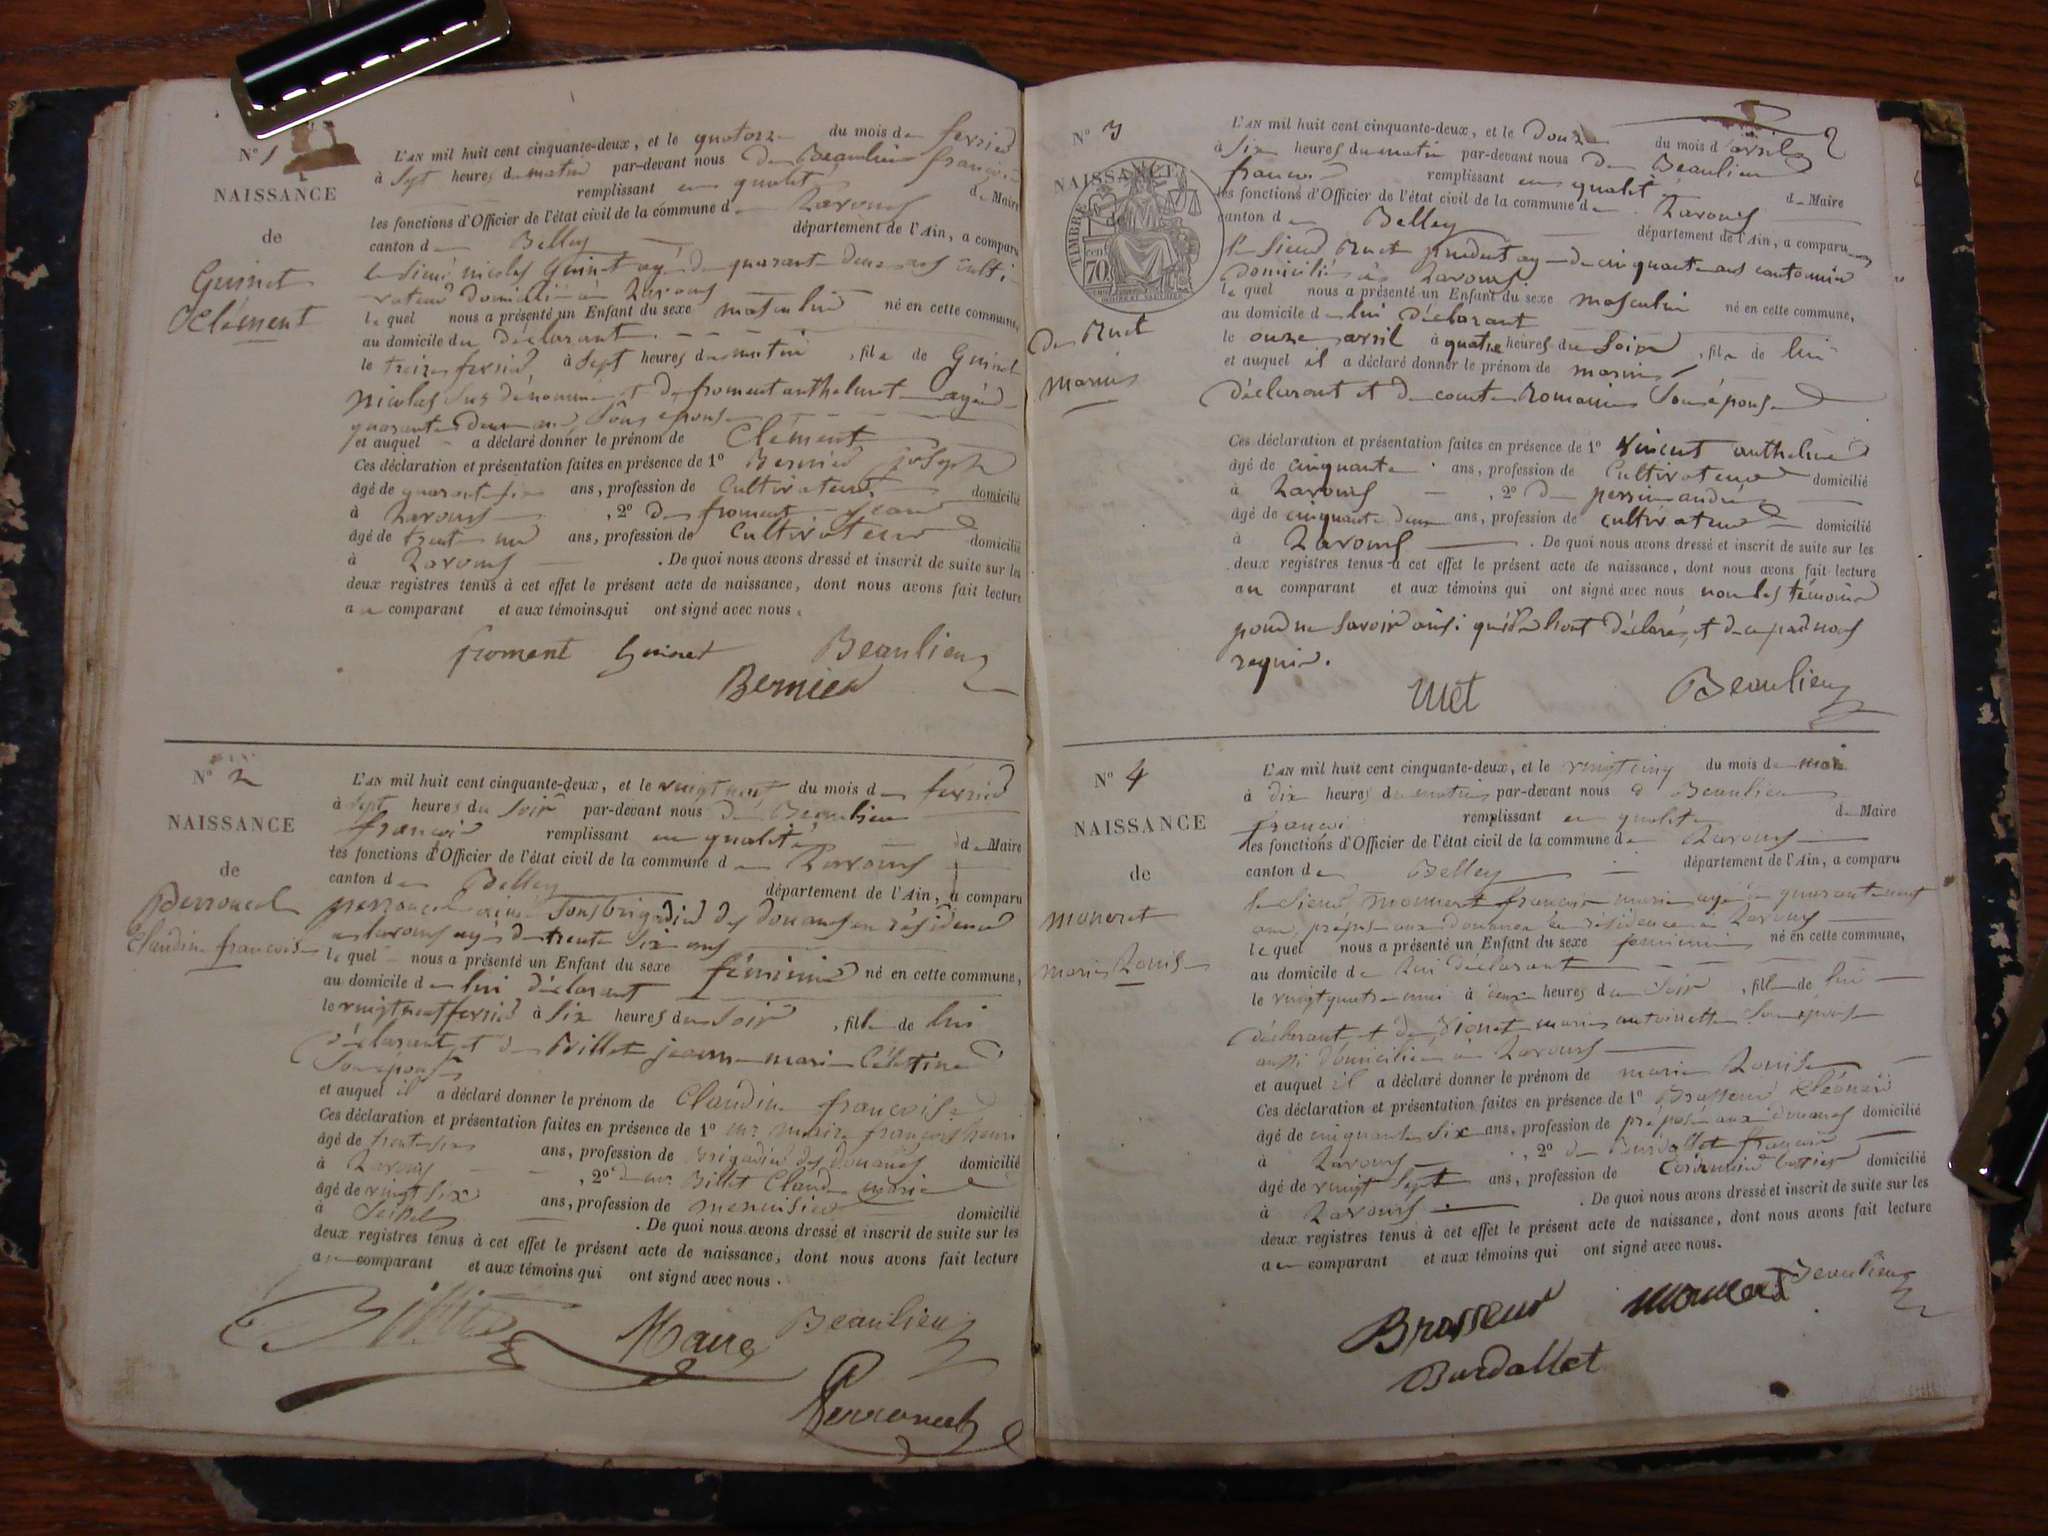 N° 1
NAISSANCE
de
Guinet
Clément
L'AN mil huit cent cinquante-deux, et le quatorze du mois de fevrier
à Sept heures du matin par-devant nous de Beaulieu françois
remplissant en qualité de Maire
les fonctions d'Officier de l'état civil de la commune de Lavours
canton de Belley département de l'Ain, a comparu
le sieur nicolas Guinet agé de quarante deux ans culti-
vateur domicilié à Lavours
lequel nous a présenté un Enfant du sexe masculin né en cette commune,
au domicile du déclarant
le treize fevrier à Sept heures du matin, fils de Guinet
nicolas Sus dénommé et de froment anthelmet agée de
quarante deux ans Son epouse
et auquel a déclaré donner le prénom de Clément
Ces déclaration et présentation faites en présence de 1° Bernier joseph
âgé de quarante six ans, profession de Cultivateur domicilié
à Lavours, 2° de froment Jean
âgé de trente un ans, profession de Cultivateur domicilié
à Lavours. De quoi nous avons dressé et inscrit de suite sur les
deux registres tenus à cet effet le présent acte de naissance, dont nous avons fait lecture
au comparant et aux témoins qui ont signé avec nous.
froment Guinet Beaulieu
Bernier
N° 2
NAISSANCE
de
Perroncel
Claudine françoise
L'AN mil huit cent cinquante-deux, et le vingt neuf du mois de fevrier
à sept heures du soir par-devant nous de Beaulieu
françois remplissant en qualité de Maire
les fonctions d'Officier de l'état civil de la commune de Lavours
canton de Belley département de l'Ain, a comparu
perroncel Sousbrigadier des douanes en résidence
a Lavours agé de trente six ans
lequel nous a présenté un Enfant du sexe féminin né en cette commune,
au domicile de lui déclarant
le vingt neuf fevrier à six heures du soir, fille de lui
déclarant et de Billet jeanne marie Célestine
Son épouse
et auquel il a déclaré donner le prénom de Claudine françoise
Ces déclaration et présentation faites en présence de 1° mr maire françois henri
âgé de trente six ans, profession de Brigadier des douanes domicilié
à Lavours, 2° de mr Billet Claude marie
âgé de vingt six ans, profession de menuisier domicilié
à Seissel. De quoi nous avons dressé et inscrit de suite sur les
deux registres tenus à cet effet le présent acte de naissance, dont nous avons fait lecture
au comparant et aux témoins qui ont signé avec nous.
Billet Maire Beaulieu
Perroncel
N° 3
NAISSANCE
TIMBRE
70 cent
de Met
marin
L'AN mil huit cent cinquante-deux, et le Douze du mois d'avril
à six heures du matin par-devant nous de Beaulieu
francois remplissant en qualité de Maire
les fonctions d'Officier de l'état civil de la commune de Lavours
canton de Belley département de l'Ain, a comparu
le sieur prudent agé de cinquante ans cantonnier
domicilié à Lavours
lequel nous a présenté un Enfant du sexe masculin né en cette commune,
au domicile de lui déclarant
le onze avril à quatre heures du Soir, fils de lui
et auquel il a déclaré donner le prénom de marin
déclarant et de comte Romaine Son épouse
Ces déclaration et présentation faites en présence de 1° Vincent anthelme
âgé de cinquante ans, profession de Cultivateur domicilié
à Lavours, 2° de perrin andré
âgé de cinquante deux ans, profession de cultivateur domicilié
à Lavours. De quoi nous avons dressé et inscrit de suite sur les
deux registres tenus à cet effet le présent acte de naissance, dont nous avons fait lecture
au comparant et aux témoins qui ont signé avec nous non les témoins
pour ne savoir ainsi qu'ils l'ont déclaré et de ce par nous
requis.
Met Beaulieu
N° 4
NAISSANCE
de
moneret
marie Louise
L'AN mil huit cent cinquante-deux, et le vingt cinq du mois de mai
à dix heures du matin par-devant nous d Beaulieu
françois remplissant en qualité de Maire
les fonctions d'Officier de l'état civil de la commune de Lavours
canton de Belley département de l'Ain, a comparu
le sieur moneret françois marie agé de quarante neuf
ans, préposé aux douanes en résidence à Lavours
lequel nous a présenté un Enfant du sexe feminin né en cette commune,
au domicile de Lui déclarant
le vingt quatre mai à heures du Soir, fille de lui
déclarant et de Vionet marie antoinette Son épouse
aussi domiciliée à Lavours
et auquel il a déclaré donner le prénom de marie Louise
Ces déclaration et présentation faites en présence de 1° Brasseur
âgé de cinquante six ans, profession de préposé aux douanes domicilié
à Lavours, 2° de Burdallet françois
âgé de vingt Sept ans, profession de domicilié
à Lavours. De quoi nous avons dressé et inscrit de suite sur les
deux registres tenus à cet effet le présent acte de naissance, dont nous avons fait lecture
au comparant et aux témoins qui ont signé avec nous.
Brasseur moneret Beaulieu
Burdallet